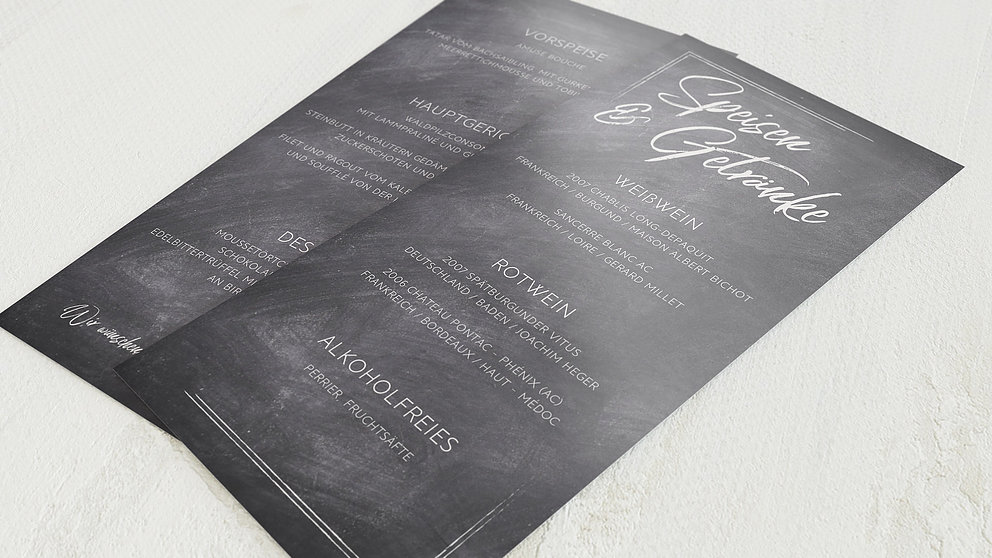 VORSPEISE
AMUSE BOUCHE
TATAR VOM BACHSAIBLING MIT GURKE
MEERRETTICHMOUSSE UND TOBI
HAUPTGERIC
WALDPILZCONSO
MIT LAMMPRALINE UND G
STEINBUTT IN KRÄUTERN GEDÄM
ZUCKERSCHOTEN UND
FILET UND RAGOUT VOM KALB
UND SOUFFLÉ VON DER
DES
MOUSSETÖRTC
SCHOKOLA
EDELBITTERTRÜFFEL M
AN BIR
Wir wünschen
Speisen
& Getränke
WEIẞWEIN
2007 CHABLIS LONG-DEPAQUIT
FRANKREICH / BURGUND / MAISON ALBERT BICHOT
SANCERRE BLANC AC
FRANKREICH / LOIRE / GERARD MILLET
ROTWEIN
2007 SPÄTBURGUNDER VITUS
DEUTSCHLAND / BADEN / JOACHIM HEGER
2006 CHATEAU PONTAC - PHÉNIX (AC)
FRANKREICH / BORDEAUX / HAUT - MÉDOC
ALKOHOLFREIES
PERRIER FRUCHTSÄFTE